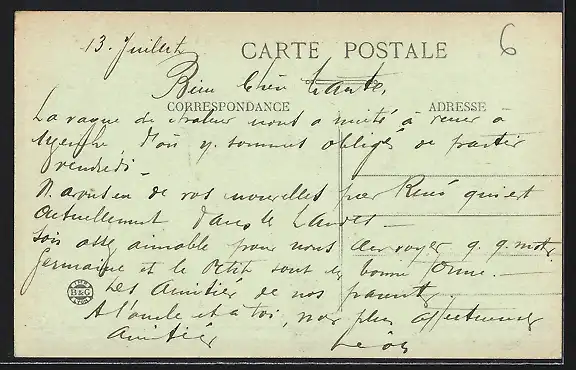 13. Juillet
6
CARTE POSTALE
Bien Chère Tante,
CORRESPONDANCE
ADRESSE
La vague de chaleur nous a invité à venir à
nous sommes obligés de partir
vendredi -
N. avons eu de vos nouvelles par René qui est
actuellement dans les Landes -
Sois assez aimable pour nous envoyer q. q. mots
Germaine et le Petit sont en bonne forme. -
Les Amitiés de nos parents
B&G
A l'oncle et à toi, nos plus affectueuses
amitiés
Léon